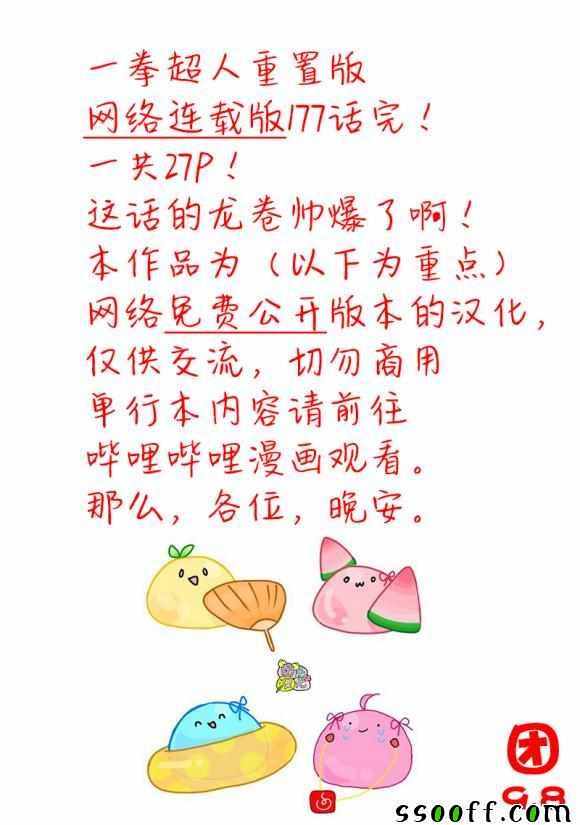 一拳超人重置版
网络连载版177话完！
一共27P！
这话的龙卷帅爆了啊！
本作品为（以下为重点）
网络免费公开版本的汉化，
仅供交流，切勿商用
单行本内容请前往
哔哩哔哩漫画观看。
那么，各位，晚安。
团
98
ssooff.com